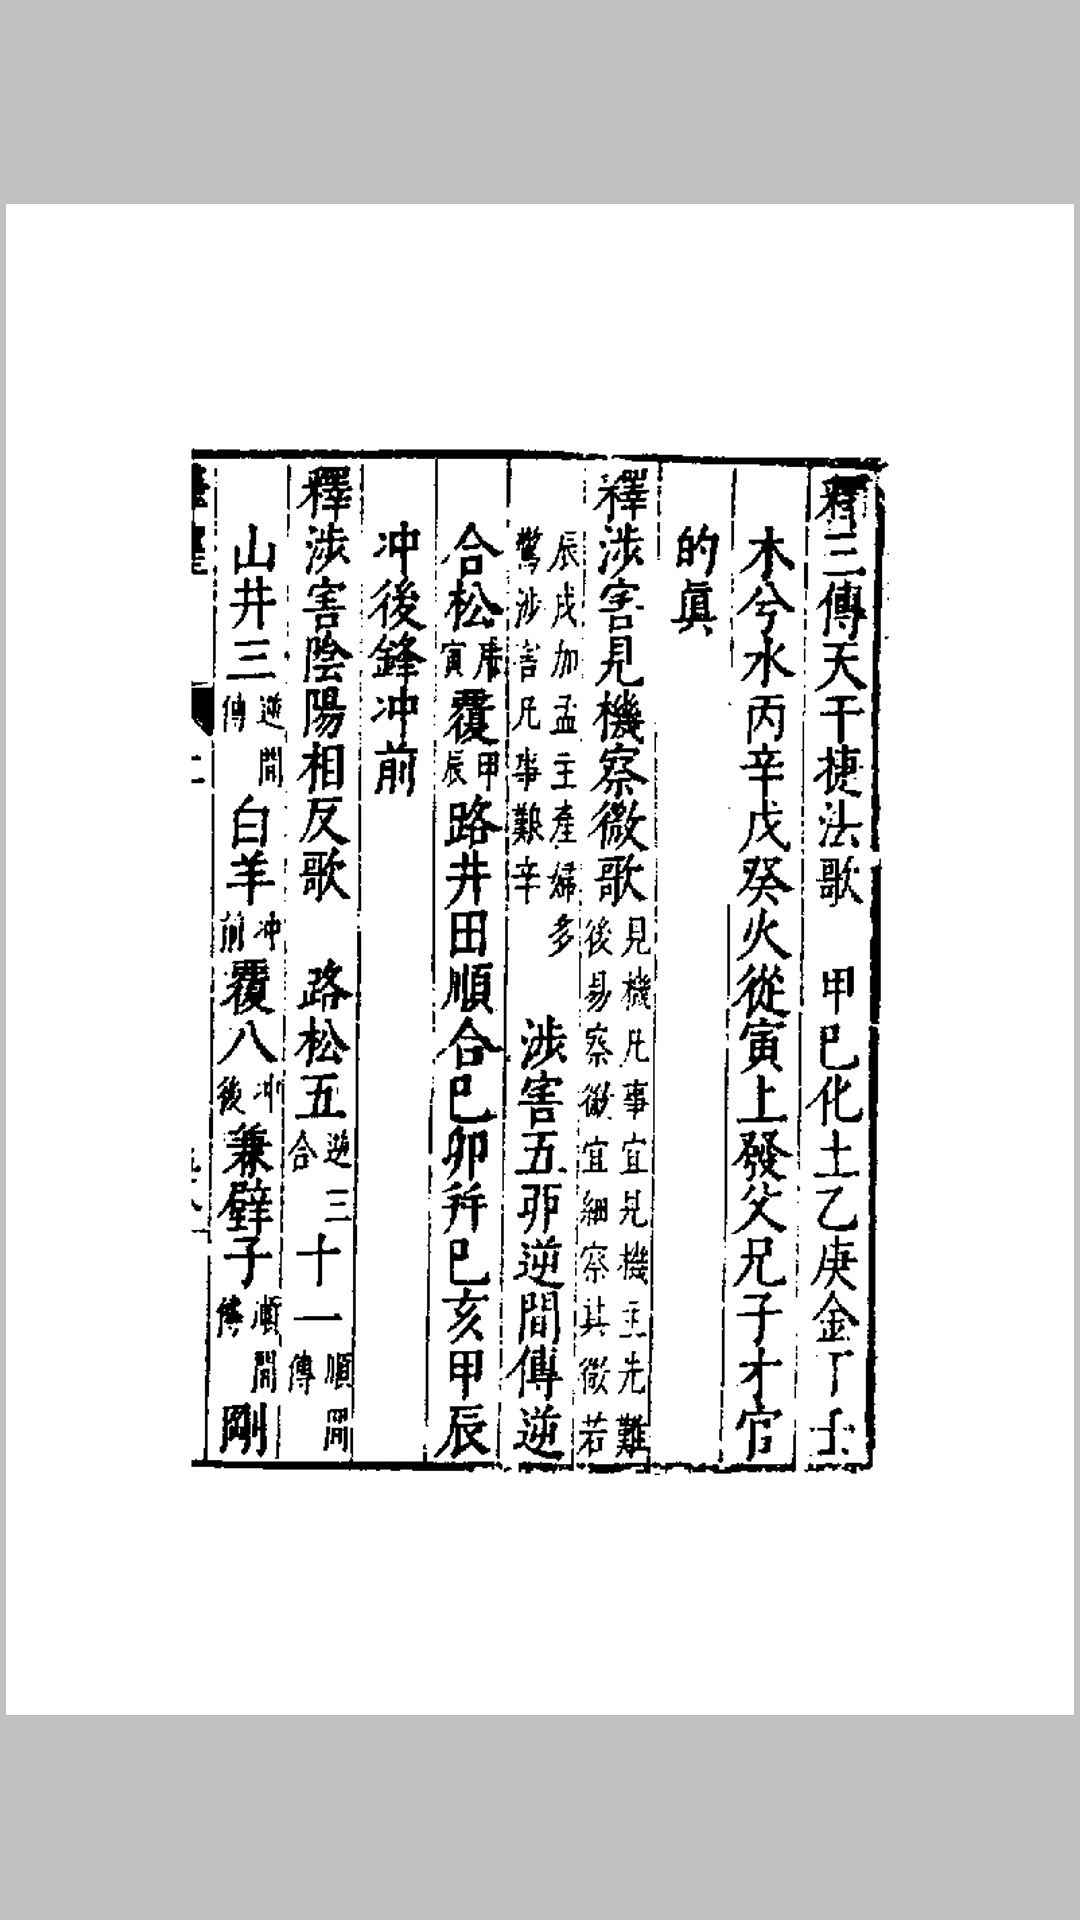 釋三傳天干捷法歌　甲巳化土乙庚金丁壬
木兮水丙辛戊癸火從寅上發父兄子才官
的眞
釋涉害見機察微歌　見機凡事宜見機主先難後易察微宜細察其微若
辰戌加孟主產婦多驚涉害凡事艱辛　涉害五夘逆間傳逆
合松 寅覆甲辰路井田順合巳卯并巳亥甲辰
冲後鋒冲前
釋涉害陰陽相反歌　路松五逆合三十一順間傳
山井三逆間傳白羊冲前覆八冲後兼壁子漸間傳剛